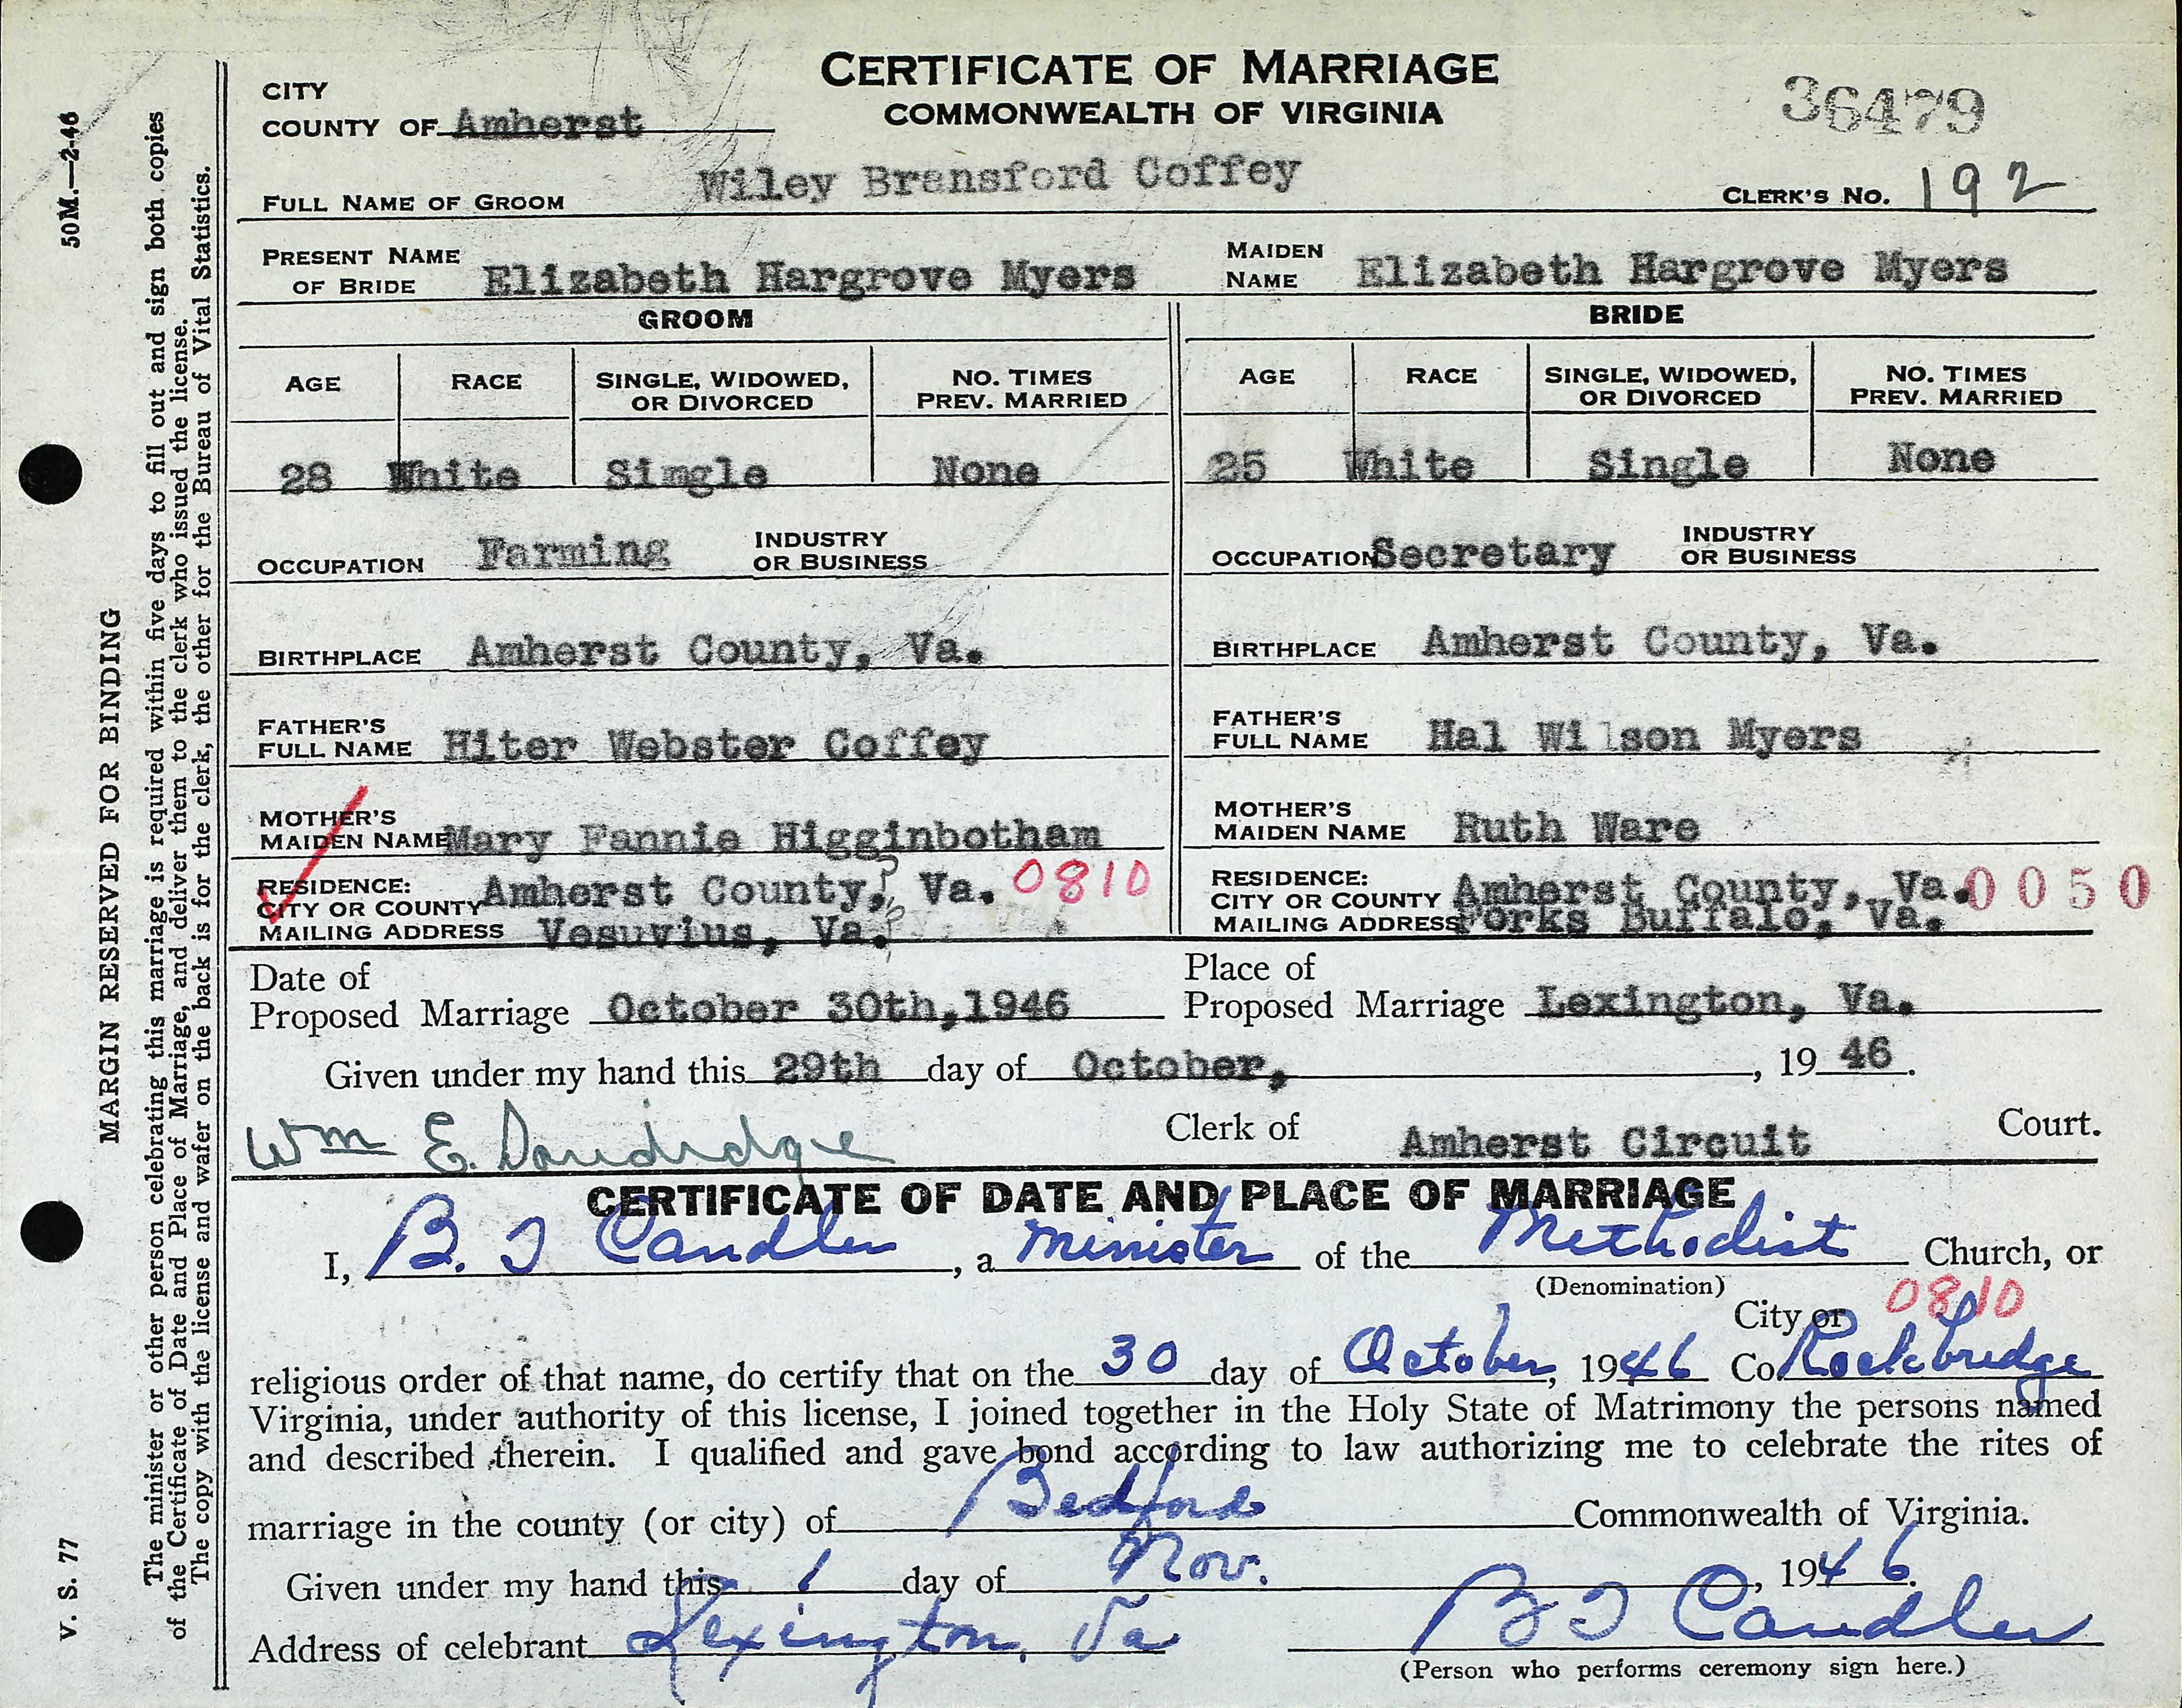 CERTIFICATE OF MARRIAGE
COMMONWEALTH OF VIRGINIA
36479
CITY
COUNTY OF Amherst
FULL NAME OF GROOM Wiley Bransford Coffey
CLERK'S No. 192
PRESENT NAME OF BRIDE Elizabeth Hargrove Myers
MAIDEN NAME Elizabeth Hargrove Myers
GROOM
AGE RACE SINGLE, WIDOWED, OR DIVORCED NO. TIMES PREV. MARRIED
28 White Simgle None
OCCUPATION Farming INDUSTRY OR BUSINESS
BIRTHPLACE Amherst County, Va.
FATHER'S FULL NAME Hiter Webster Coffey
MOTHER'S MAIDEN NAME Mary Fannie Higginbotham
RESIDENCE:
CITY OR COUNTY Amherst County, Va. 0810
MAILING ADDRESS Vesuvius, Va.
BRIDE
AGE RACE SINGLE, WIDOWED, OR DIVORCED NO. TIMES PREV. MARRIED
25 White Single None
OCCUPATION Secretary INDUSTRY OR BUSINESS
BIRTHPLACE Amherst County, Va.
FATHER'S FULL NAME Hal Wilson Myers
MOTHER'S MAIDEN NAME Ruth Ware
RESIDENCE:
CITY OR COUNTY Amherst County, Va. 0050
MAILING ADDRESS Forks Buffalo, Va.
Date of
Proposed Marriage October 30th,1946
Place of
Proposed Marriage Lexington, Va.
Given under my hand this 29th day of October, , 19 46.
Wm E. Dandridge Clerk of Amherst Circuit Court.
CERTIFICATE OF DATE AND PLACE OF MARRIAGE
I, B. T Candler, a minister of the Methodist Church, or
(Denomination)
City or 0810
religious order of that name, do certify that on the 30 day of October, 1946 Co. Rockbridge
Virginia, under authority of this license, I joined together in the Holy State of Matrimony the persons named
and described therein. I qualified and gave bond according to law authorizing me to celebrate the rites of
marriage in the county (or city) of Bedford Commonwealth of Virginia.
Given under my hand this 1 day of Nov. , 1946.
Address of celebrant Lexington, Va B T Candler
(Person who performs ceremony sign here.)
50M.—2-46
MARGIN RESERVED FOR BINDING
V. S. 77
The minister or other person celebrating this marriage is required within five days to fill out and sign both copies
of the Certificate of Date and Place of Marriage, and deliver them to the clerk who issued the license.
The copy with the license and wafer on the back is for the clerk, the other for the Bureau of Vital Statistics.